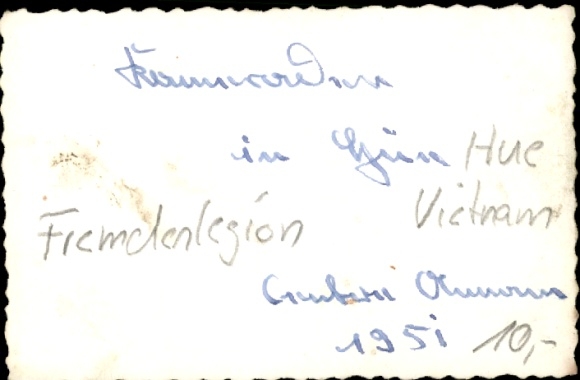 Kameraden
in Hue
Fremdenlegion Vietnam
Annam
1951 10,-